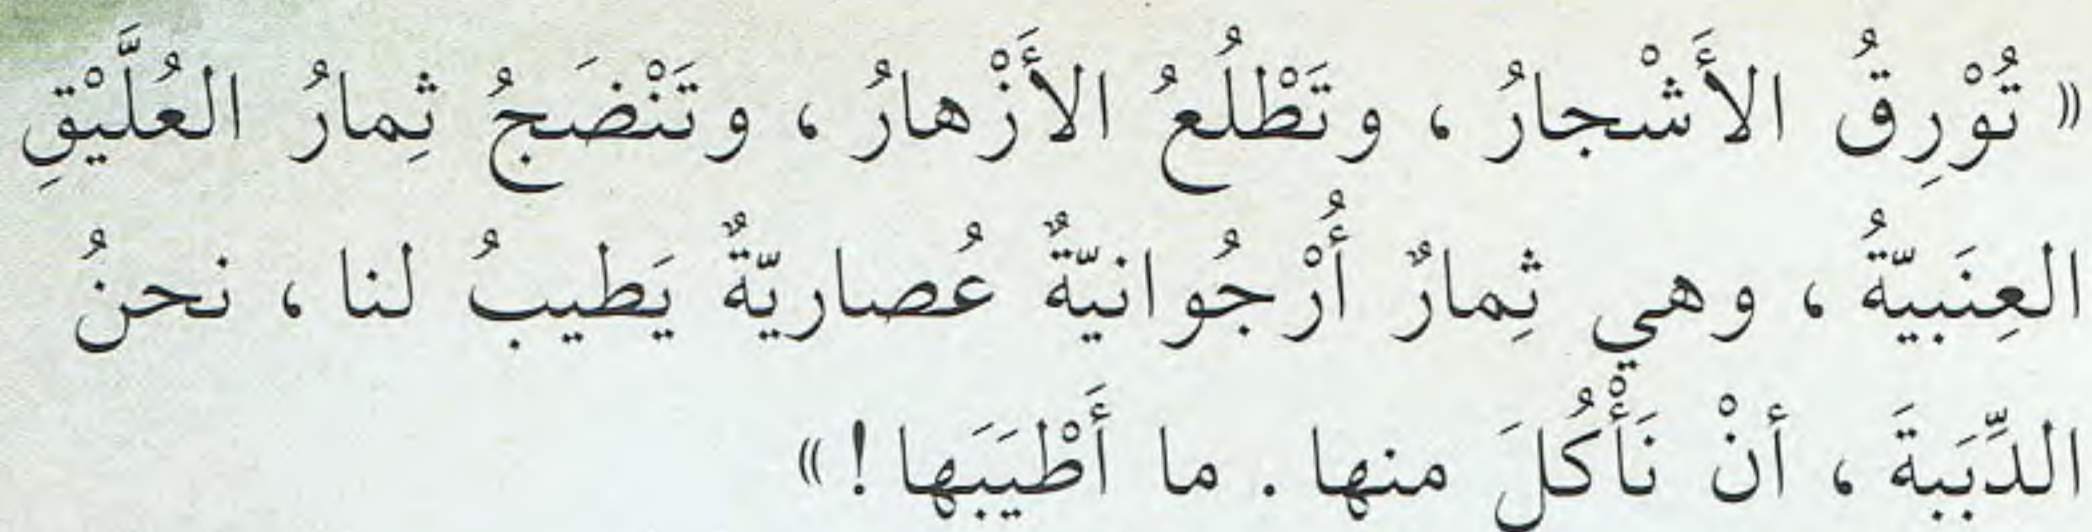 « تُوْرِقُ الأَشْجارُ ، وتَطْلُعُ الأَزْهارُ ، وتَنْضَجُ ثِمارُ العُلَّيْقِ
العِنَبيّةُ ، وهي ثِمارٌ أُرْجُوانيّةٌ عُصاريّةٌ يَطيبُ لنا ، نحنُ
الدِّبَبةَ ، أنْ نَأْكُلَ منها . ما أَطْيَبَها ! »